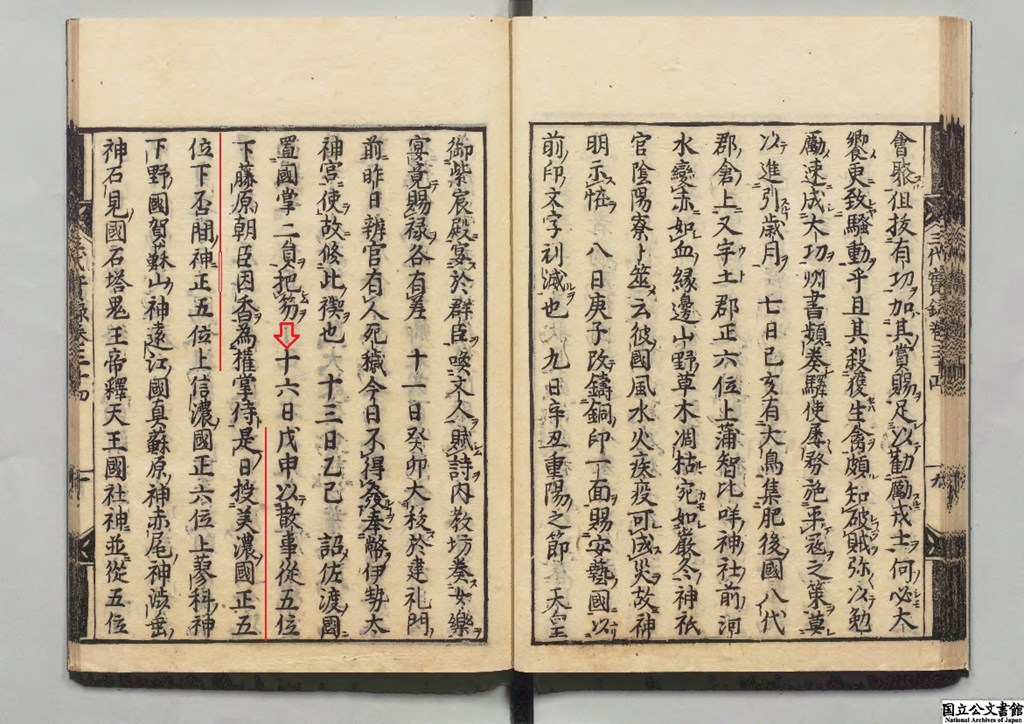 三代實録卷三十四 九
會聚徂抜有功加其賞賜足以勸勵戎士何必大
饗更致騒動乎且其殺獲生禽頗知破賊弥以勉
勵速成大功州書頻奏驛使屡務施平冦之策莫
以進引歳月 七日己亥有大鳥集肥後國八代
郡倉上又宇土郡正六位上蒲智比咩神社前河
水變赤如血縁邊山野草木凋枯宛如嚴冬神祇
官陰陽寮卜筮云彼國風水火疾疫可成災故神
明示恠 八日庚子改鑄銅印一面賜安藝國以
前印文字刓滅也 九日辛丑重陽之節 天皇
御紫宸殿宴於群臣喚文人賦詩内教坊奏女樂
宴竟賜禄各有差 十一日癸卯大祓於建礼門
前昨日辨官有人死穢今日不得發奉幣伊勢太
神宮使故修此禊也 十三日乙巳 詔佐渡國
置國掌二貟把笏 十六日戊申以散事從五位
下藤原朝臣因香為權掌侍是日授美濃國正五
位下否間神正五位上信濃國正六位上蓼科神
下野國賀蘇山神遠江國真蘇原神赤尾神渋垂
神石見國石塔鬼王帝釋天王國社神並從五位
三代實録卷三十四 十
国立公文書館
National Archives of Japan